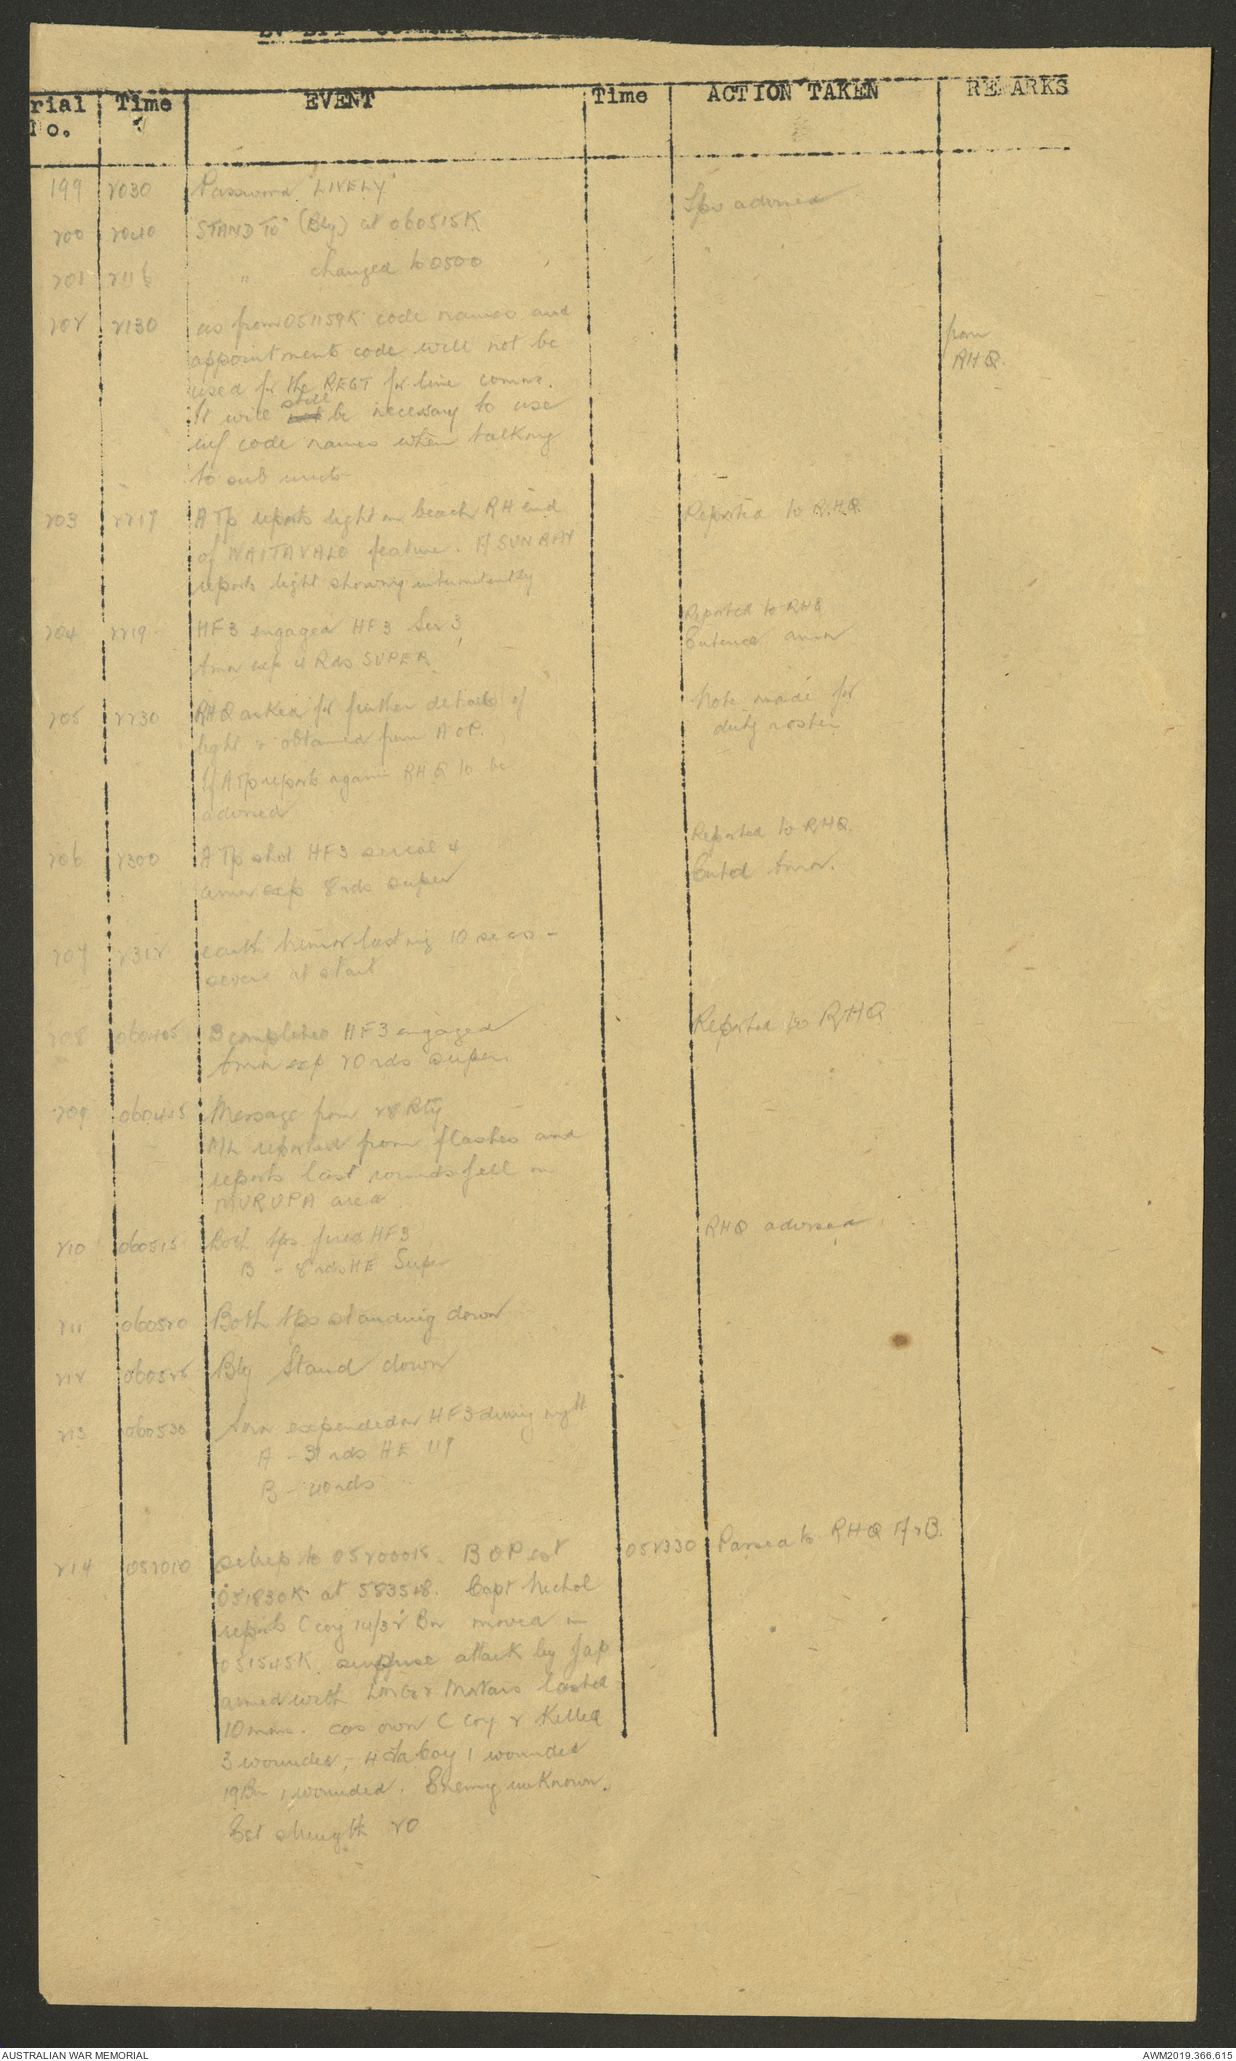 rial Time EVENT Time ACTION TAKEN REMARKS
No.
199 2030 Password "LIVELY" Tps advised
200 2040 STAND TO" (Bty) at 060515K "
201 2116 " changed to 0500
202 2130 as from 051159K code names and from
appointments code will not be RHQ.
used for the REGT for line comms.
It will still be necessary to use
inf code names when talking
to sub units
203 2217 A Tp reports light on beach RH end Reported to R.H.Q.
of WAITAVALO feature. A SUNRAY
reports light showing intermittently
204 2219 HF3 engaged HF3 Ser 3, Reported to RHQ
Amn exp 4 Rds SUPER. Entered amn
205 2230 RHQ asked for further details of Note made for
light & obtained from A OP. duty roster
If A Tp reports again RHQ to be
advised
206 2300 A Tp shot HF3 serial 4 Reported to RHQ.
amn exp 8 rds super Entd Amn.
207 2312 earth tremor lasting 10 secs -
severe at start
208 060405 B completed HF3 engaged Reported to RHQ
Amn exp 20 rds super.
209 060445 Message from 28 Bty
ML reported from flashes and
reports last rounds fell in
MURUPA area
210 060515 Both tps fired HF3 RHQ advised
B - 8 rds HE Super
211 060520 Both tps standing down
212 060525 Bty Stand down
213 060530 Amn expended on HF3 during night
A - 31 rds HE 119
B - 40 rds
214 052010 sitrep to 052000K. B OP est 052330 Passed to RHQ A & B.
051830K at 583548. Capt Nichol
reports C coy 14/32 Bn moved in
051545K. surprise attack by Jap
armed with LMGs & Mortars lasted
10 mins. cas own C coy 2 Killed
3 wounded, - H Fa Coy 1 wounded
19 Bn 1 wounded. Enemy unknown.
Est strength 20
AUSTRALIAN WAR MEMORIAL AWM2019.366.615